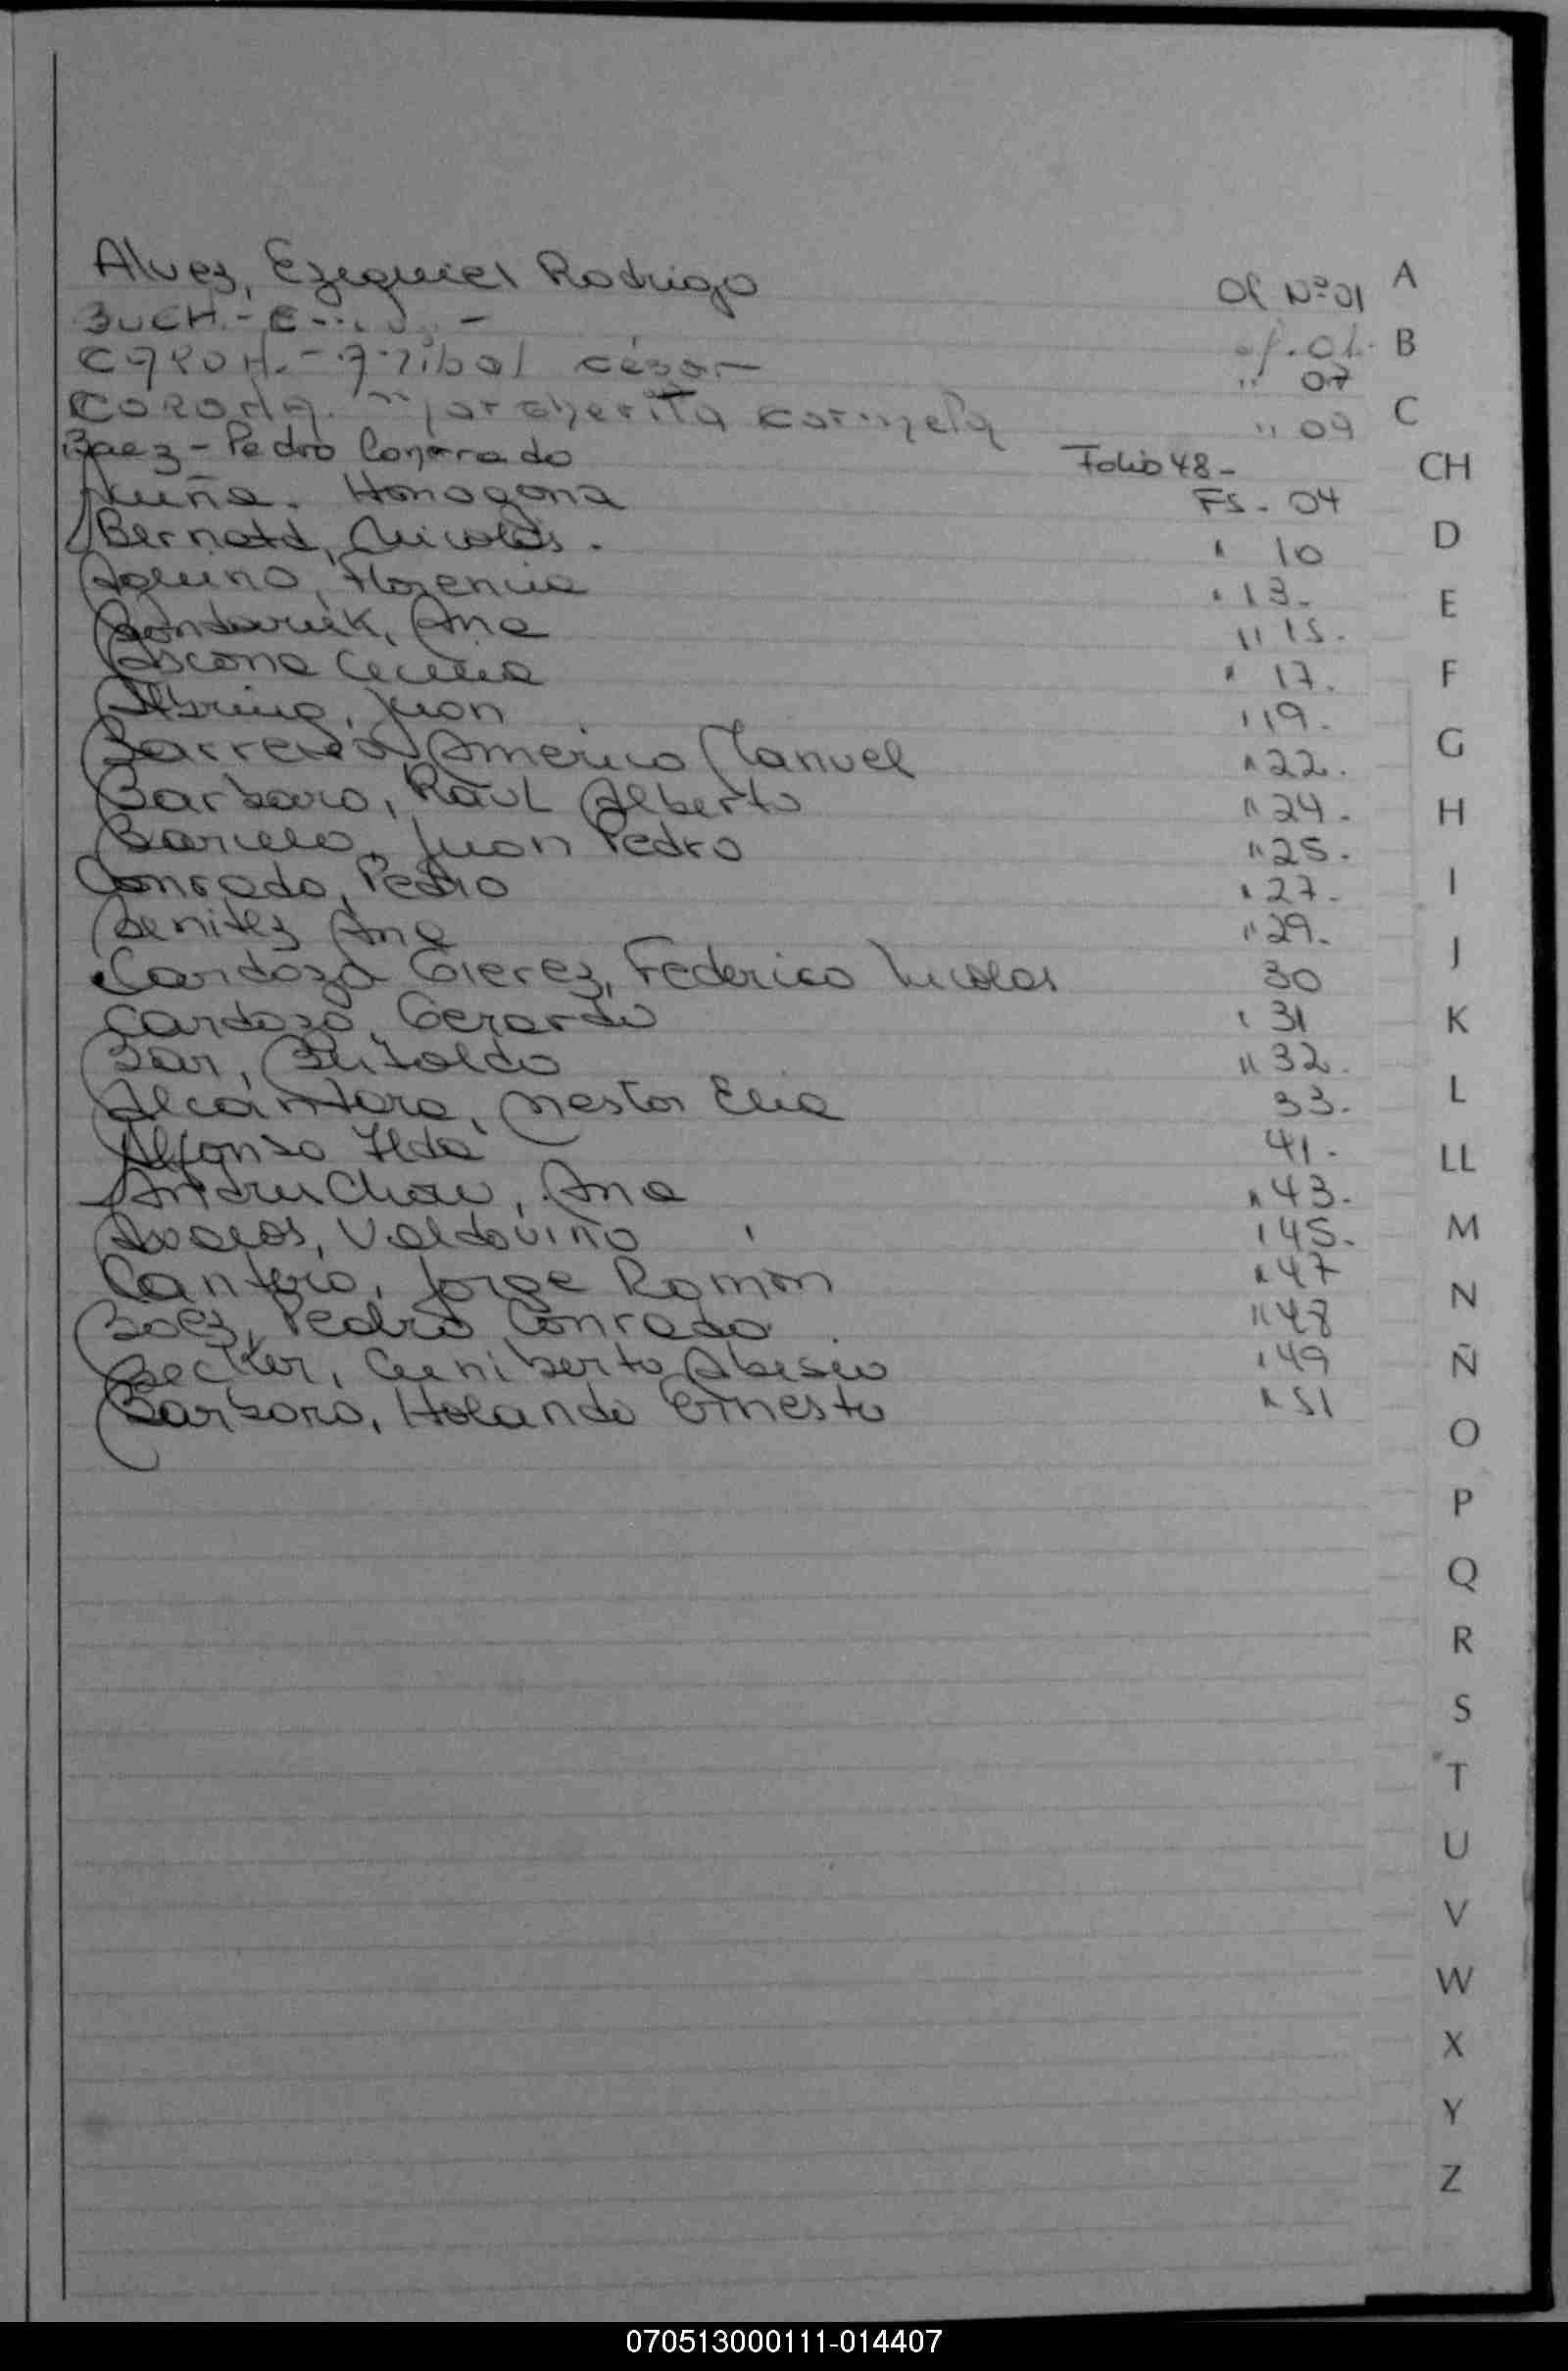 Alvez, Ezequiel Rodrigo Of Nº 01
BUCH.- of. 01.
César " 07
Margherita Carmela " 09
Baez - Pedro Conrrado Folio 48-
Acuña. Fs. 04
Bernatd, Nicolás. " 10
Aquino, Florencia " 13.
Bondaruk, Ana " 15.
Ascona Cecilia " 17.
Juan " 19.
Barreiro, Americo Manuel " 22.
Barbaro, Raúl Alberto " 24.
Barcelo, Juan Pedro " 25.
Conrado, Pedro " 27.
Benitez Ana " 29.
Cardozo Gierez, Federico Nicolas 30
Cardozo, Gerardo " 31
Bar, " 32.
Alcantara, Nestor Elia 33.
Alfonso Ilda 41.
Andruchow, Ana " 43.
Avalos, Valdovino " 45.
Cantero, Jorge Ramon " 47
Baez, Pedro Conrado " 48
Becker, " 49
Barboro, Holando Ernesto " 51
A
B
C
CH
D
E
F
G
H
I
J
K
L
LL
M
N
Ñ
O
P
Q
R
S
T
U
V
W
X
Y
Z
070513000111-014407